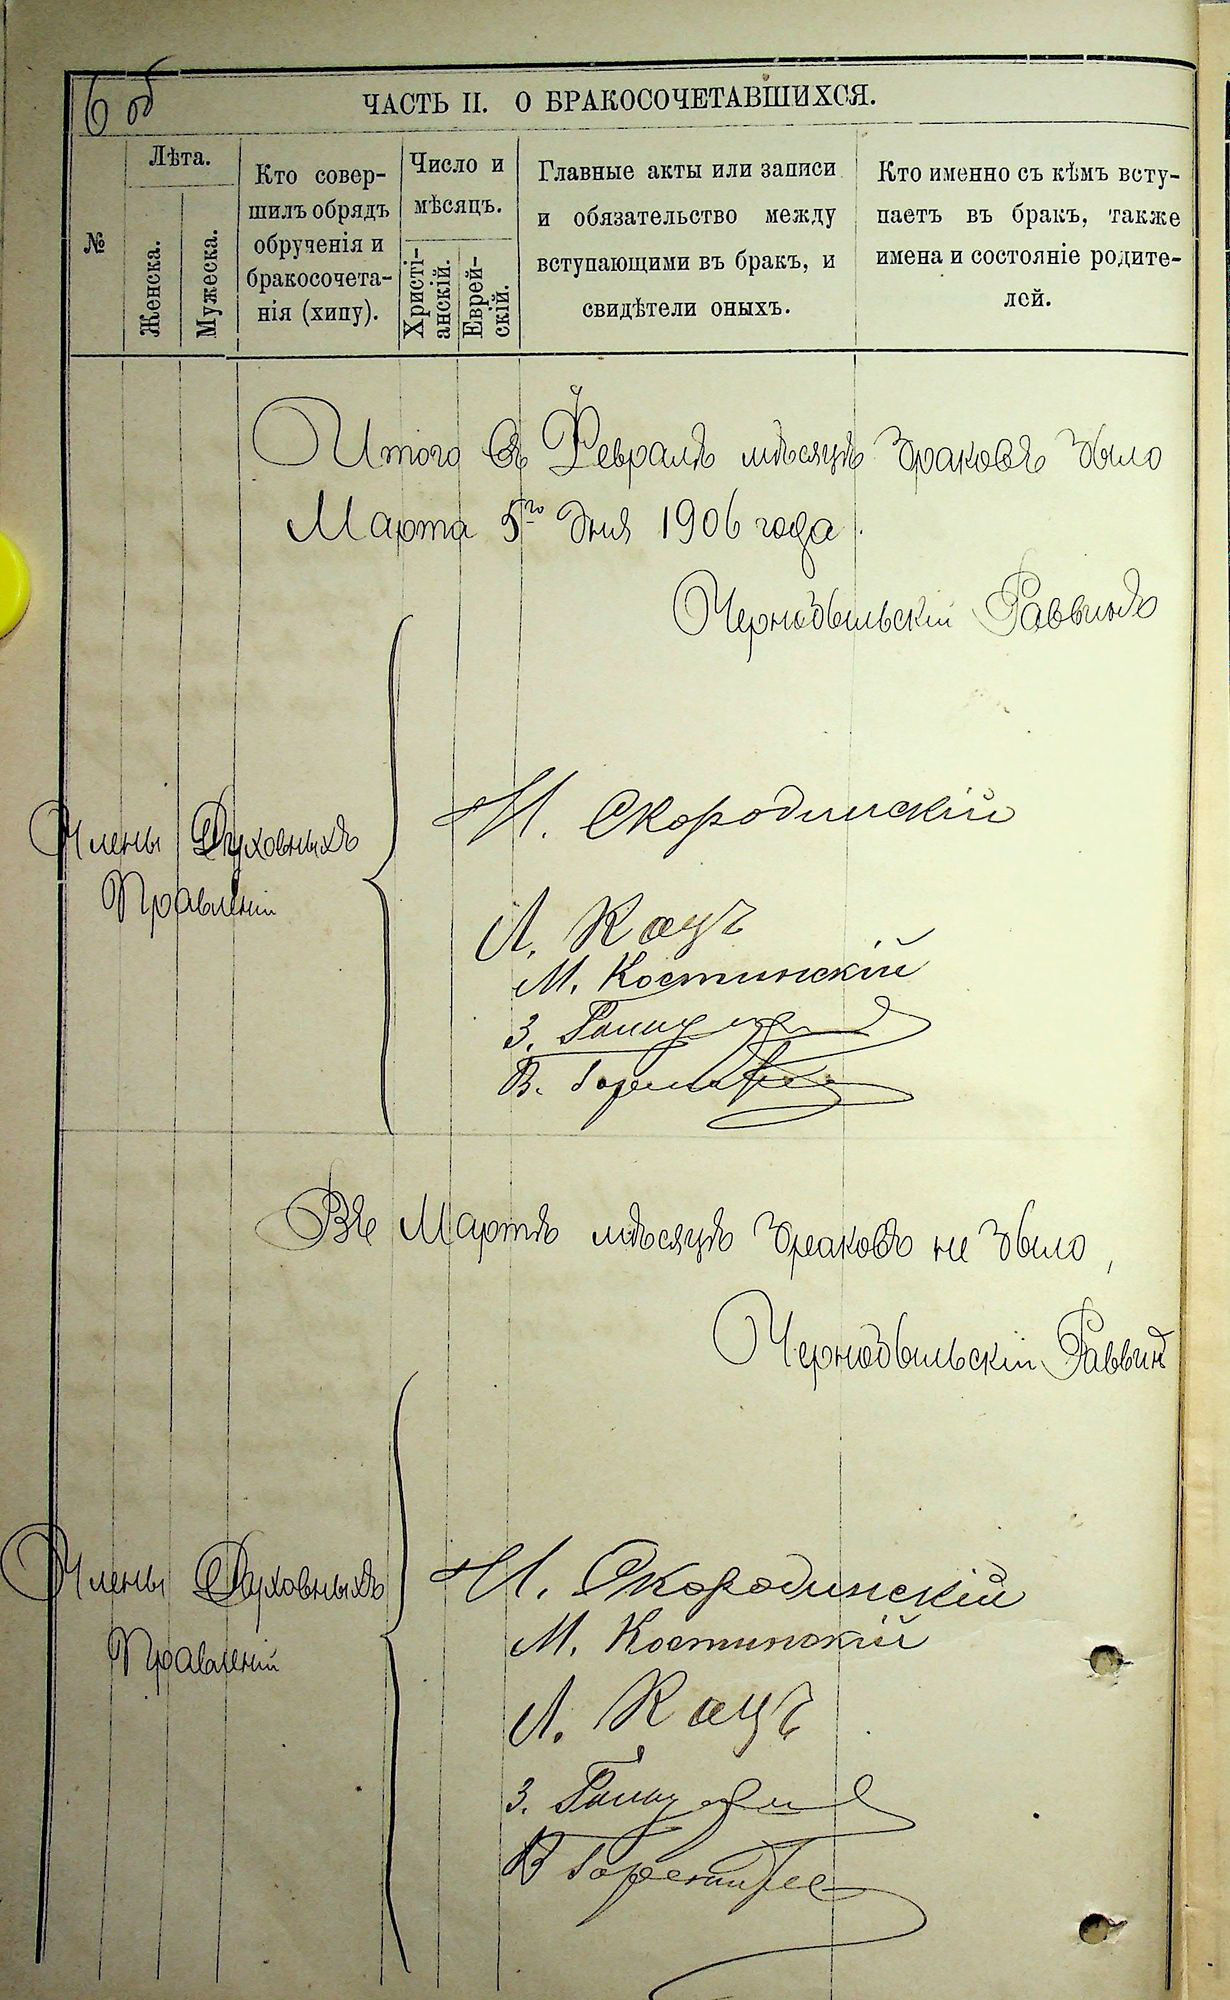 6 об
ЧАСТЬ II. О БРАКОСОЧЕТАВШИХСЯ.
№
Лѣта.
Женска.
Мужеска.
Кто совер-
шилъ обрядъ
обрученія и
бракосочета-
нія (хипу).
Число и
мѣсяцъ.
Христі-
анскій.
Еврей-
скій.
Главные акты или записи
и обязательство между
вступающими въ бракъ, и
свидѣтели оныхъ.
Кто именно съ кѣмъ всту-
паетъ въ бракъ, также
имена и состояніе родите-
лей.
Итого въ Февралѣ мѣсяцѣ браковъ было
Марта 5го дня 1906 года.
Чернобыльскій Раввинъ
Члены Духовныхъ
Правленій
И. Скородинскій
Л. Кацъ
М. Костинскій
З.
В.
Въ Мартѣ мѣсяцѣ браковъ не было,
Чернобыльскій Раввинъ
Члены Духовныхъ
Правленій
И. Скородинскій
М. Костинскій
Л. Кацъ
З.
В